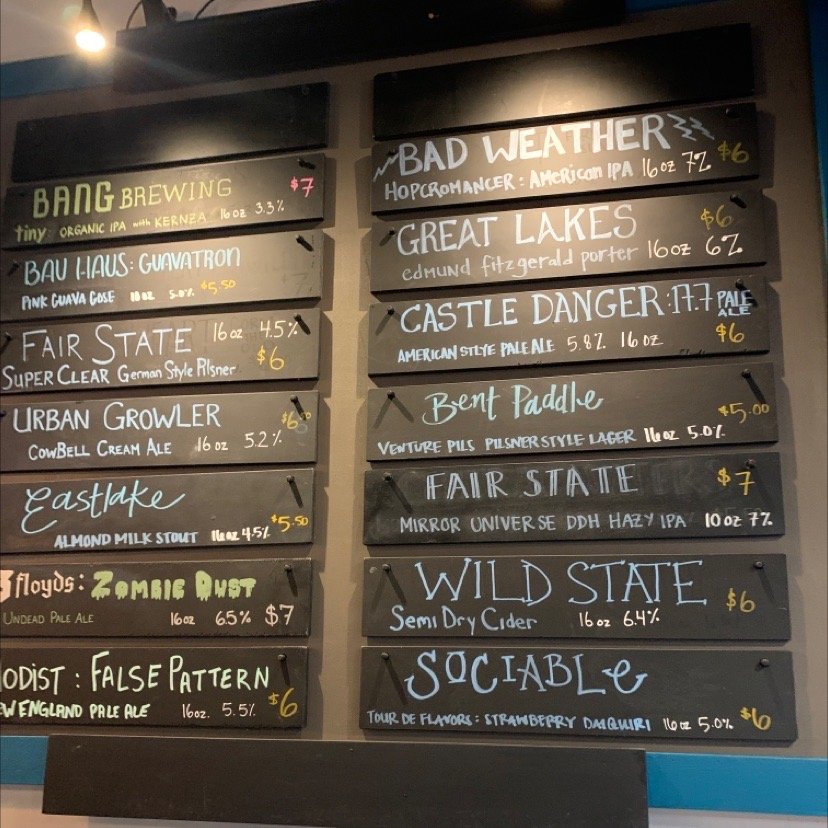 BANG BREWING $7
tiny ORGANIC IPA with KERNZA 16 oz 3.3%
BAU HAUS: GUAVATRON
PINK GUAVA GOSE 5.0% $5.50
FAIR STATE 16 oz 4.5%
$6
SUPER CLEAR German Style Pilsner
URBAN GROWLER
COWBELL CREAM ALE 16 oz 5.2%
Eastlake
ALMOND MILK STOUT 16 oz 4.5% $5.50
3 floyds: ZOMBIE DUST
UNDEAD PALE ALE 16oz 6.5% $7
ODIST : FALSE PATTERN
EW ENGLAND PALE ALE 16oz. 5.5% $6
BAD WEATHER $6
HOPCROMANCER: AMERICAN IPA 16 oz 7%
GREAT LAKES $6
edmund fitzgerald porter 16 oz 6%
CASTLE DANGER: 17.7 PALE ALE
AMERICAN STLYE PALE ALE 5.8% 16 OZ $6
Bent Paddle
$5.00
VENTURE PILS PILSNER STYLE LAGER 16 oz 5.0%
FAIR STATE $7
MIRROR UNIVERSE DDH HAZY IPA 10 oz 7%
WILD STATE
Semi Dry Cider 16 oz 6.4% $6
SOCIABLe
TOUR DE FLAVORS: STRAWBERRY DAIQUIRI 16 oz 5.0% $6